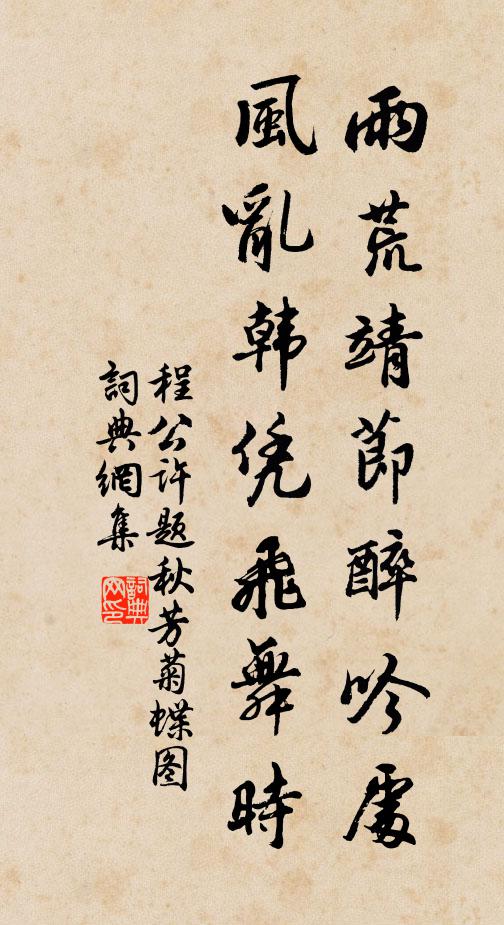 雨荒靖節醉吟處
風亂韩凭飛舞時
程公許題秋芳菊蝶图
詞典網集
詞典网印